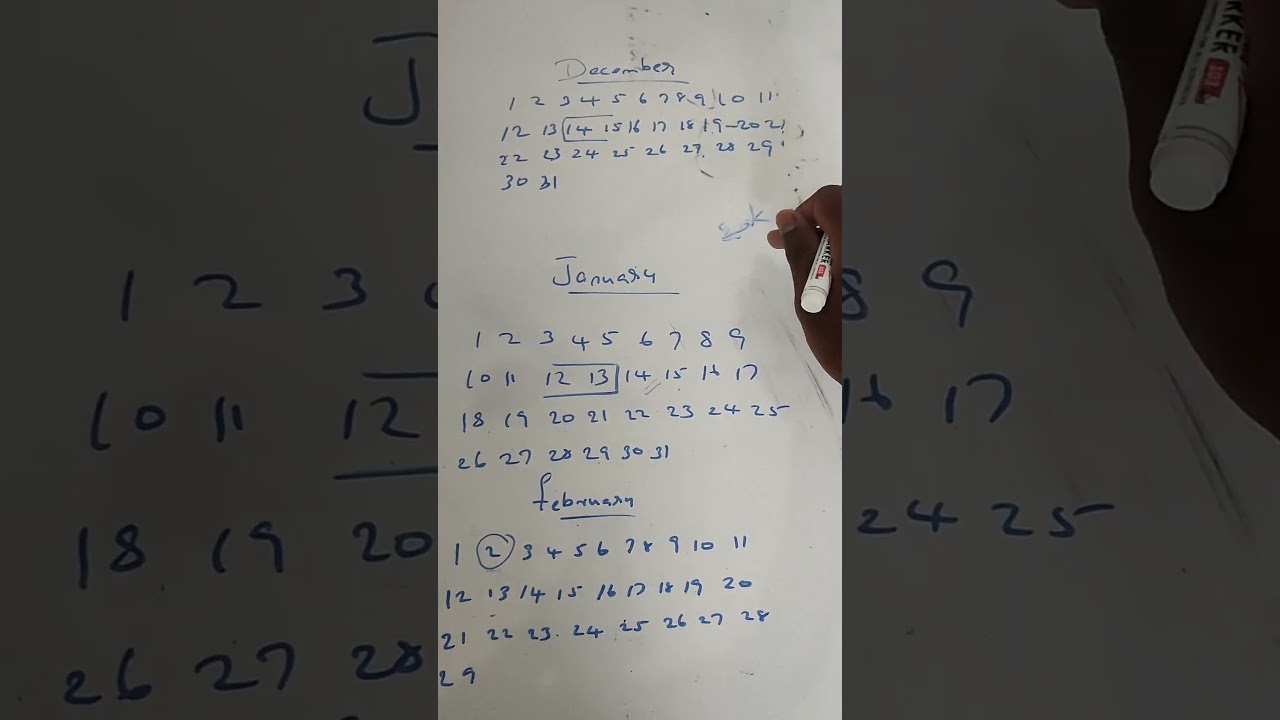 December
1 2 3 4 5 6 7 8 9 10 11
12 13 14 15 16 17 18 19 20 21
22 23 24 25 26 27 28 29
30 31
January
1 2 3 4 5 6 7 8 9
10 11 12 13 14 15 16 17
18 19 20 21 22 23 24 25
26 27 28 29 30 31
february
1 2 3 4 5 6 7 8 9 10 11
12 13 14 15 16 17 18 19 20
21 22 23 24 25 26 27 28
29